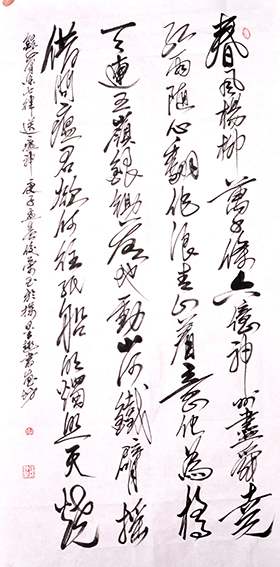 春風楊柳萬千條六億神州盡舜堯
紅雨隨心翻作浪青山着意化為橋
天連五嶺銀鋤落地動山河鐵臂搖
借問瘟君欲何往紙船明燭照天燒
七律送瘟神庚子